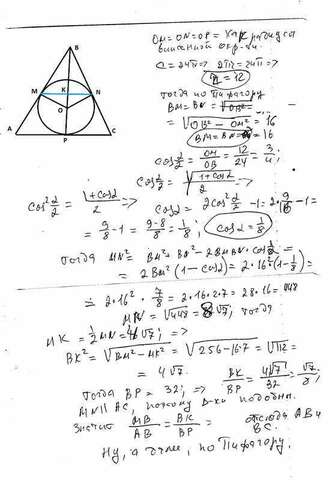 B
M K N
O
A P C
OM = ON = OP = как радиусы
вписанной окр-ти.
C = 24π ⇒ 2πr = 24π ⇒
r = 12
тогда по Пифагору
BM = BN = √OB²-
= √OB² - OM² = 16
BM = BN = 16
cos α/2 = OM/OB = 12/24 = 3/4;
cos α/2 = √(1+cosα)/2 ⇒
cos² α/2 = (1+cosα)/2 ⇒ cosα = 2cos² α/2 - 1 = 2·9/16 - 1 =
= 9/8 - 1 = (9-8)/8 = 1/8; cosα = 1/8
тогда MN² = BM² + BN² - 2BM·BN·cos α/2 =
= 2BM²(1 - cosα) = 2·16²(1 - 1/8) =
= 2·16²·7/8 = 2·16·2·7 = 28·16 = 448
MN = √448 = 8√7; тогда
MK = 1/2 MN = 4√7; ⇒
BK² = √BM² - MK² = √256 - 16·7 = √112 =
= 4√7.
тогда BP = 32; ⇒ BK/BP = 4√7/32 = √7/8;
MN || AC, поэтому Δ-ки подобны.
Значит MB/AB = BK/BP = отсюда AB и
BC.
Ну, а далее, по Пифагору.